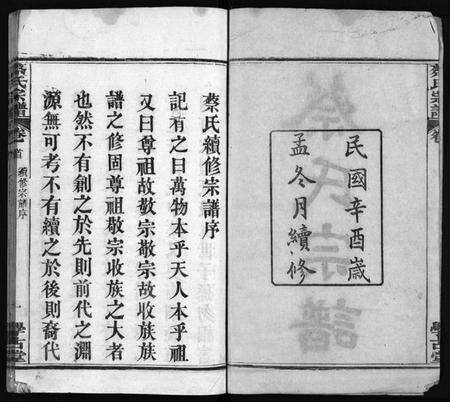 蔡氏宗譜
民國辛酉歲
孟冬月續修
蔡氏宗譜
卷
學古堂
蔡氏續修宗譜序
記有之曰萬物本乎天人本乎祖
又曰尊祖故敬宗敬宗故收族族
譜之修固尊祖敬宗收族之大者
也然不有創之於先則前代之淵
源無可考不有續之於後則裔代
蔡氏宗譜
卷首
續修宗譜序
一
學古堂